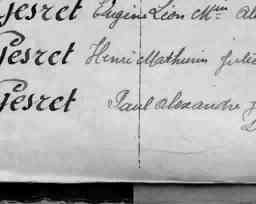 Pesret Eugène Léon Mⁱⁿ
Pesret Henri Mathurin
Pesret Paul Alexandre